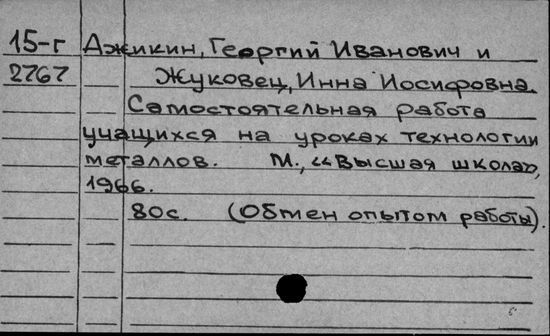 15-г Джикин, Георгий Иванович и
2767 Жуковец, Инна Иосифовна.
Самостоятельная работа
учащихся на уроках технологии
металлов. М., «Высшая школа»,
1966.
80с. (Обмен опытом работы).